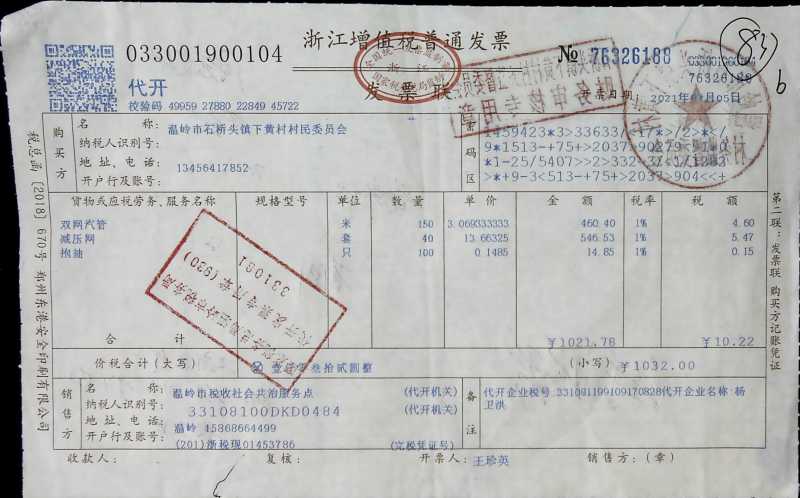 033001900104
浙江增值税普通发票
№ 76326188
033001900104
76326188
83
b
代开
发票联
校验码 49959 27880 22849 45722
开票日期: 2021年01月05日
购买方
名称: 温岭市石桥头镇下黄村村民委员会
纳税人识别号:
地址、电话: 13456417852
开户行及账号:
密码区
9*1513-+75+>2037>90279-<10
>*+9-3<513-+75+>2037>904<<+
货物或应税劳务、服务名称 规格型号 单位 数量 单价 金额 税率 税额
双网汽管 米 150 3.069333333 460.40 1% 4.60
减压网 套 40 13.66325 546.53 1% 5.47
抱油 只 100 0.1485 14.85 1% 0.15
合计 ¥1021.78 ¥10.22
价税合计(大写) 壹仟零叁拾贰圆整 (小写) ¥1032.00
销售方
名称: 温岭市税收社会共治服务点 (代开机关)
纳税人识别号: 33108100DKD0484 (代开机关)
地址、电话: 温岭 15868664499
开户行及账号: (201)浙税现01453786 (完税凭证号)
备注
代开企业税号:331081199109170828代开企业名称:杨
卫洪
收款人: 复核: 开票人: 王珍英 销售方:(章)
税总函〔2018〕670号 郑州东港安全印刷有限公司
第二联:发票联 购买方记账凭证
331081
代开发票专用章(920)